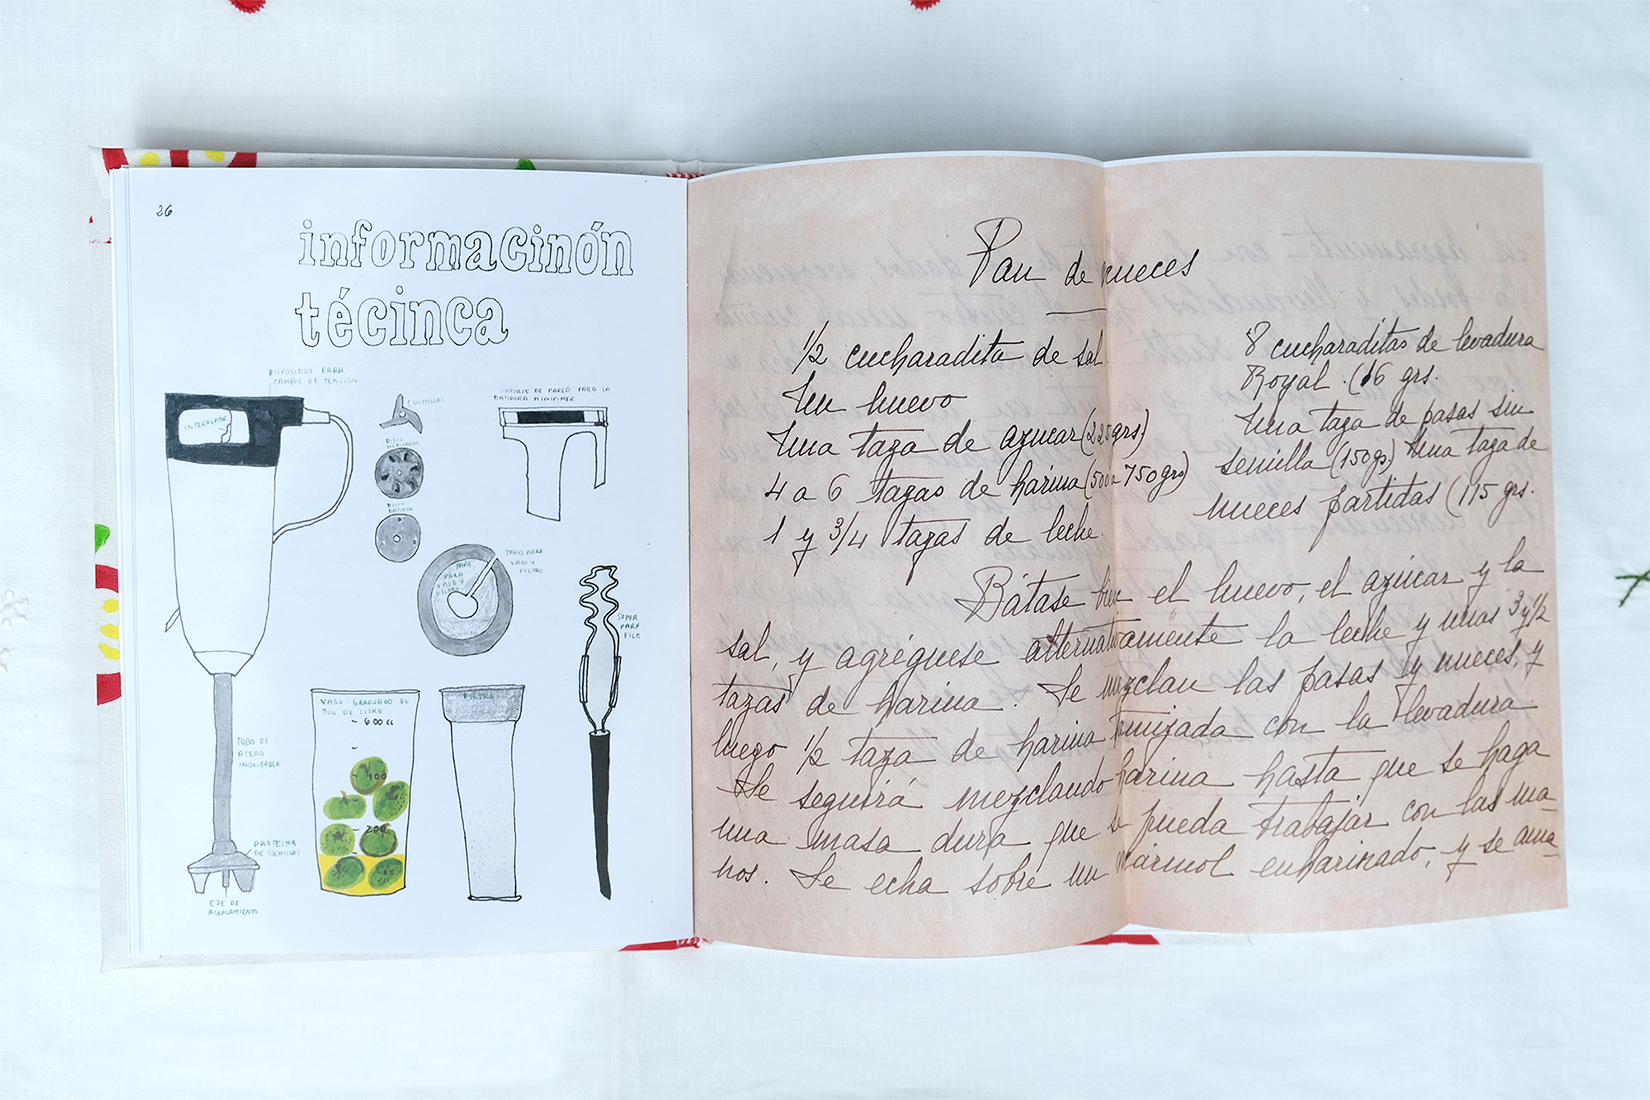 26
informacinón
técinca
DISPOSITIVO PARA
CAMBIO DE TENSION
INTERRUPTOR
CUCHILLAS
DISCO
MEZCLADOR
DISCO
BATIDOR
SOPORTE DE PARED PARA LA
BATIDORA MINIPIMER
TAPA PARA
VASO Y
FILTRO
TAPA
PARA
VASO Y
SOPOR
PARA
FILM
VASO GRADUADO DE
DE LITRO
600 cc
400
200
FILTRO
TUBO DE
ACERO
INOXIDABLE
PROTECTOR
DE CUCHILLAS
EJE DE
ACOPLAMIENTO
Pan de nueces
1/2 cucharadita de sal
Un huevo
Una taza de azucar (225 grs)
4 a 6 tazas de harina (500 a 750 grs)
1 y 3/4 tazas de leche
8 cucharaditas de levadura
Royal. (16 grs.
Una taza de pasas sin
semilla (150 gs) Una taza de
nueces partidas (115 grs.
Bátase bien el huevo, el azúcar y la
sal, y agréguese alternativamente la leche y unas 3 y 1/2
tazas de harina. Se mezclan las pasas y nueces, y
luego 1/2 taza de harina tamizada con la levadura
Se seguirá mezclando harina hasta que se haga
una masa dura que se pueda trabajar con las ma-
nos. Se echa sobre un mármol enharinado, y se ama-